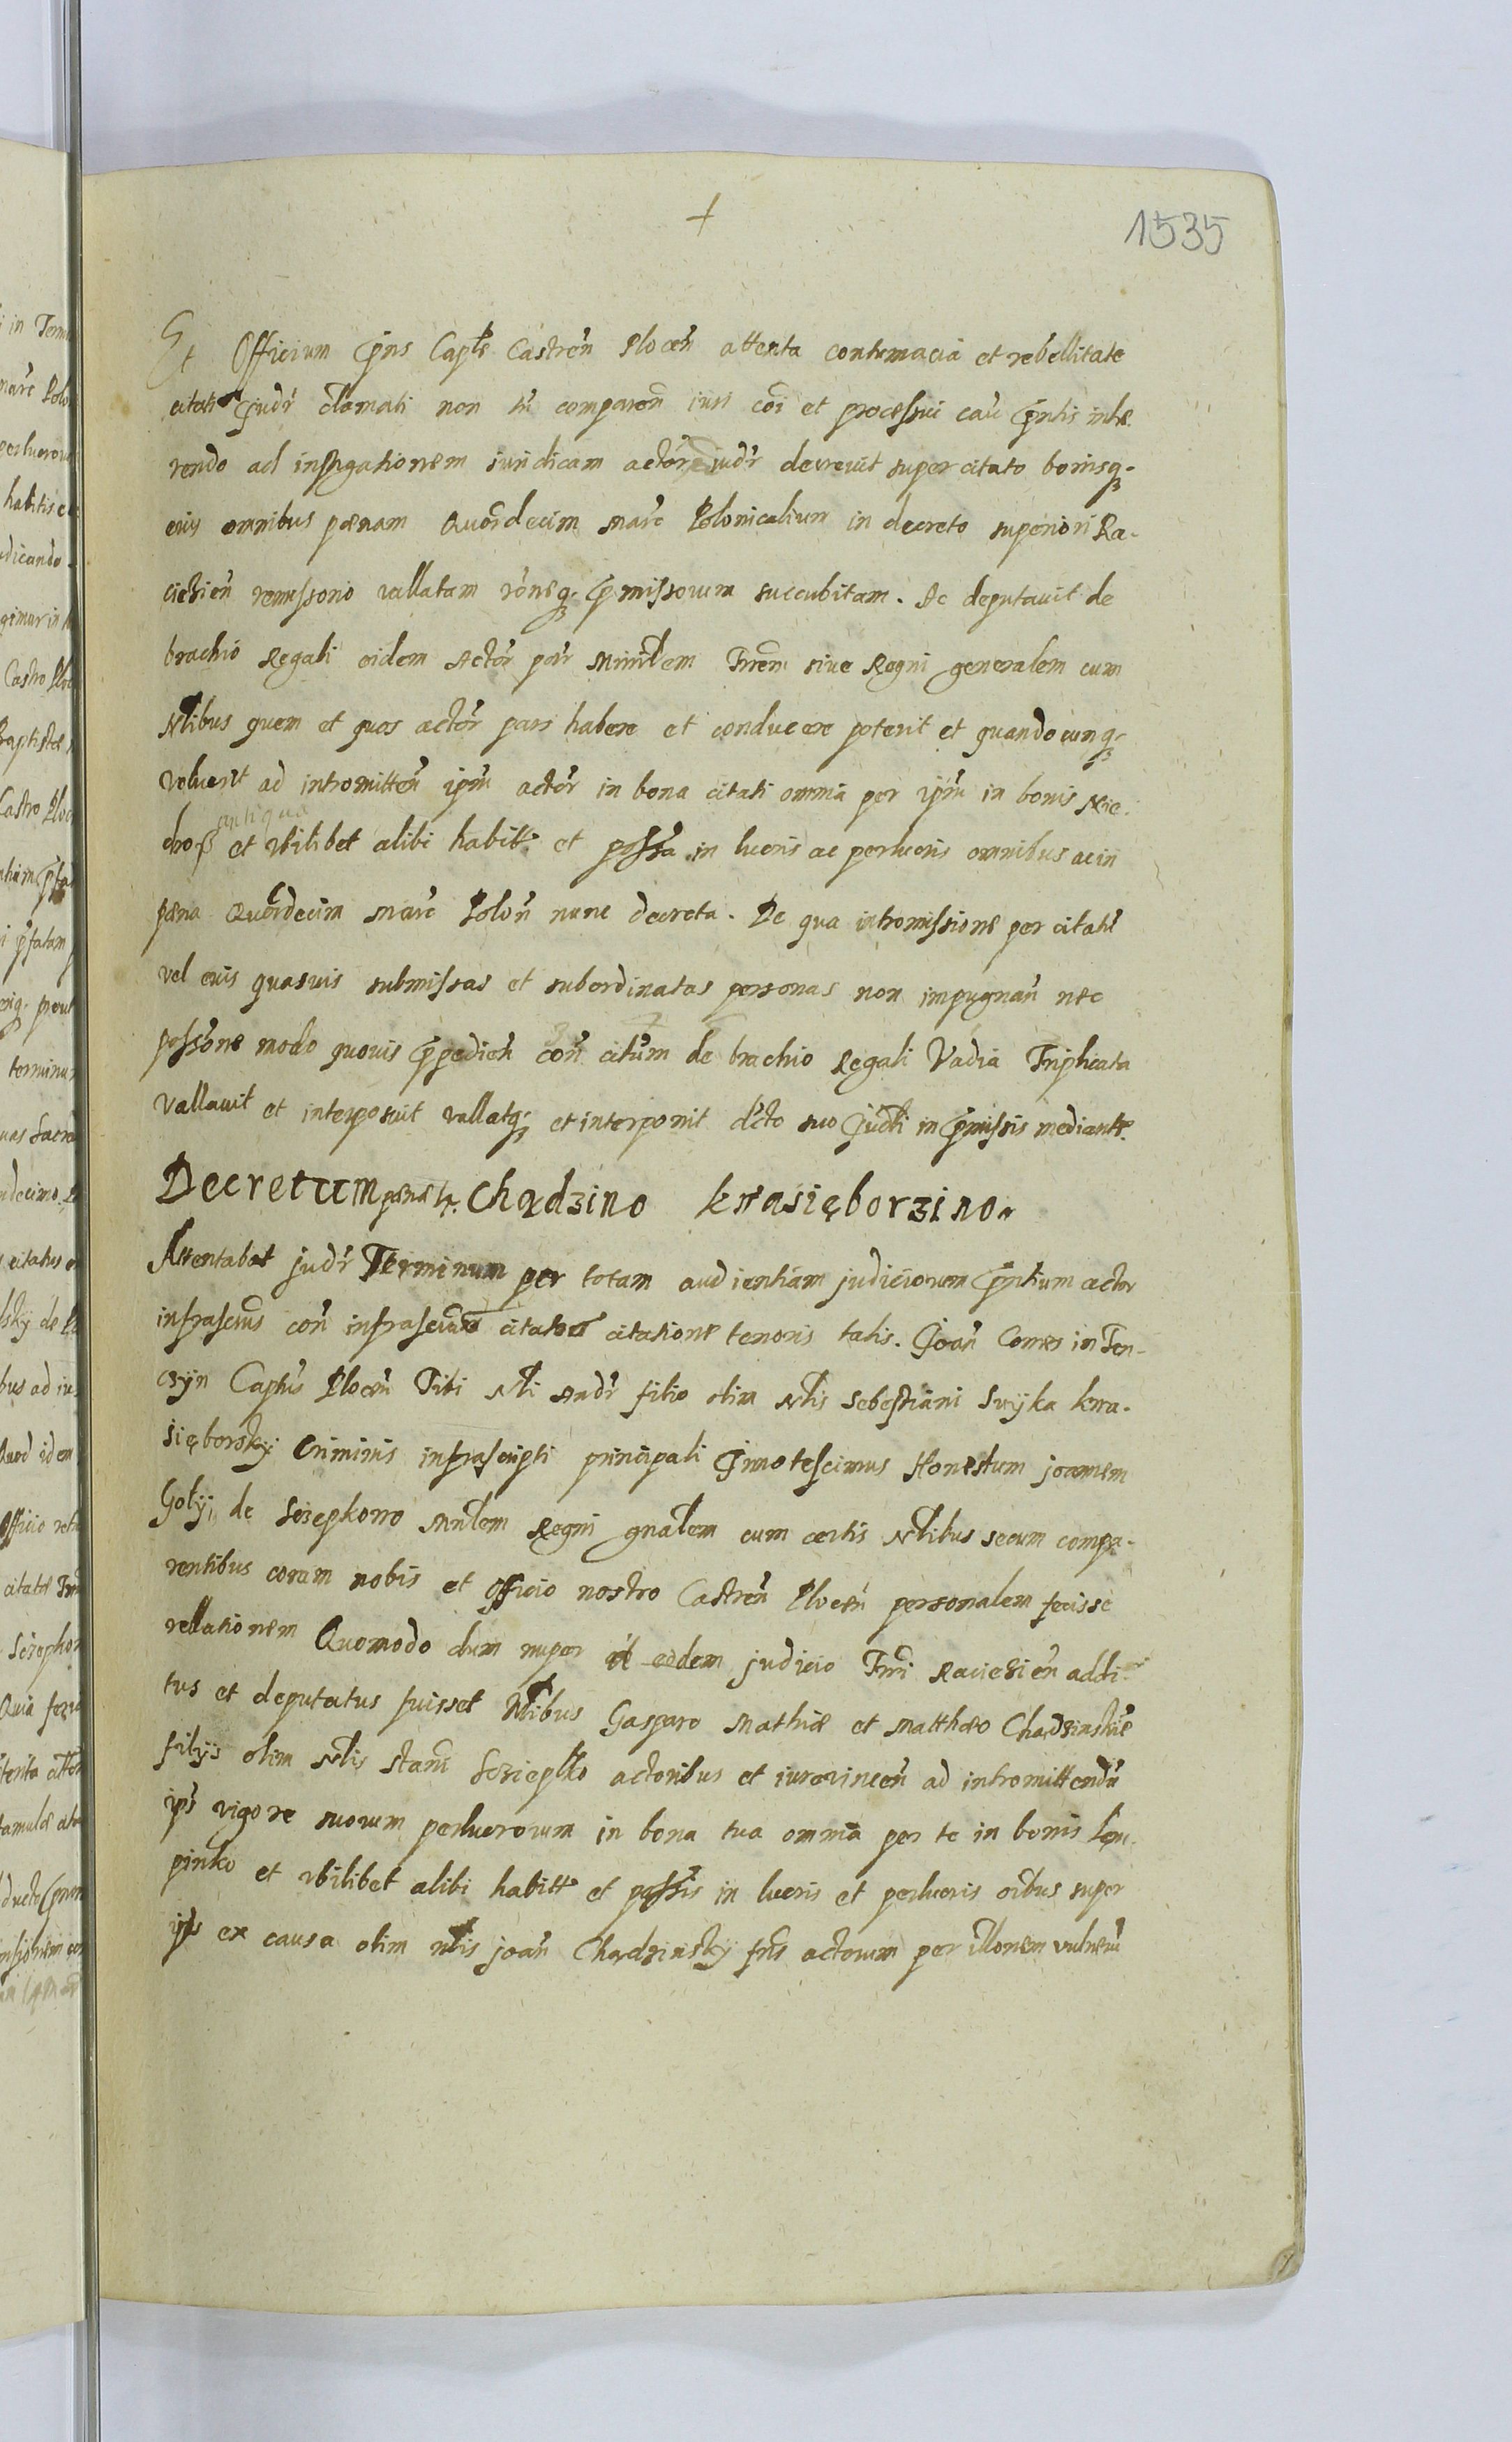 +
1535
Et Officium p̃ns Capłe Castreñ Plocen̄ attenta contumacia et rebellitate
citati judr̃ clamati non tñ compareñ iuri cõi et processui cau p̃ntis inhæ
rendo ad instigationem iuridicam actor judr̃ decrevit super citato bonisq3
eius omnibus pœnam Quordecim marc̃ Polonicalium in decreto superiori Ra-
ciezieñ remissorio vallatam rõneq3 p̃missorum succubitam. Ac deputavit de
brachio Regali eidem Actor̃ par Minrłem Trrem̃ sive Regni generalem cum
Nłibus quem et quos actor̃ pars habere et conducere poterit et quandocunq3
voluerit ad intromitteñ ipm̃ actor̃ in bona citati omnia per ipm̃ in bonis Nie-
drosz antiqua et ubilibet alibi habitt et possa in lucris ac perlucris omnibus ac in
pæna Quordecim Marc̃ Poloñ nunc decreta. De qua intromissione per citatũ
vel eius quasvis submissas et subordinatas personas non impugnañ nec
possõne modo quovis p̃pedieñ coñ citum de brachio Regali Vadia Triplicata
vallavit et interposuit vallatq3 et interponit dcto suo judłi in p̃missis mediante.
Decretum pœnæ Chądzino krasięborzino
Attentabat judr̃ Terminum per totam audientiam judiciorum p̃ntium actor
infrascrius coñ infrascrium citatum citatione tenoris talis. Joañ Comes in Ten-
czyn Captus̃ Ploceñ Tibi Nłi Andr̃ filio olim Nłis Sebestiani Suyka kra-
sięborsky Criminis infrascripti principali Innotescimus Honestum joannem
Gołÿ de Szczepkowo Mnłem Regni gnałem cum certis Nłibus secum compa-
rentibus coram nobis et officio nostro Castreñ Ploceñ personalem fecisse
rellationem Quomodo dum nuper eodem judicio Trri Raciezieñ addi-
tus et deputatus fuisset Nłibus Gasparo Mathiæ et Matthæo Chądzinskie
filijs olim Nłis Stani Szczepko actoribus et iurevinceñ ad intromittendũ
ips̃ vigore suorum perlucrorum in bona tua omnia per te in bonis Lem-
pinko et ubilibet alibi habitt et possis in lucris et perlucris oibus super
ips̃ ex causa olim nłis joañ Chądzinsky fris̃ actorum per illonem vulnerũ